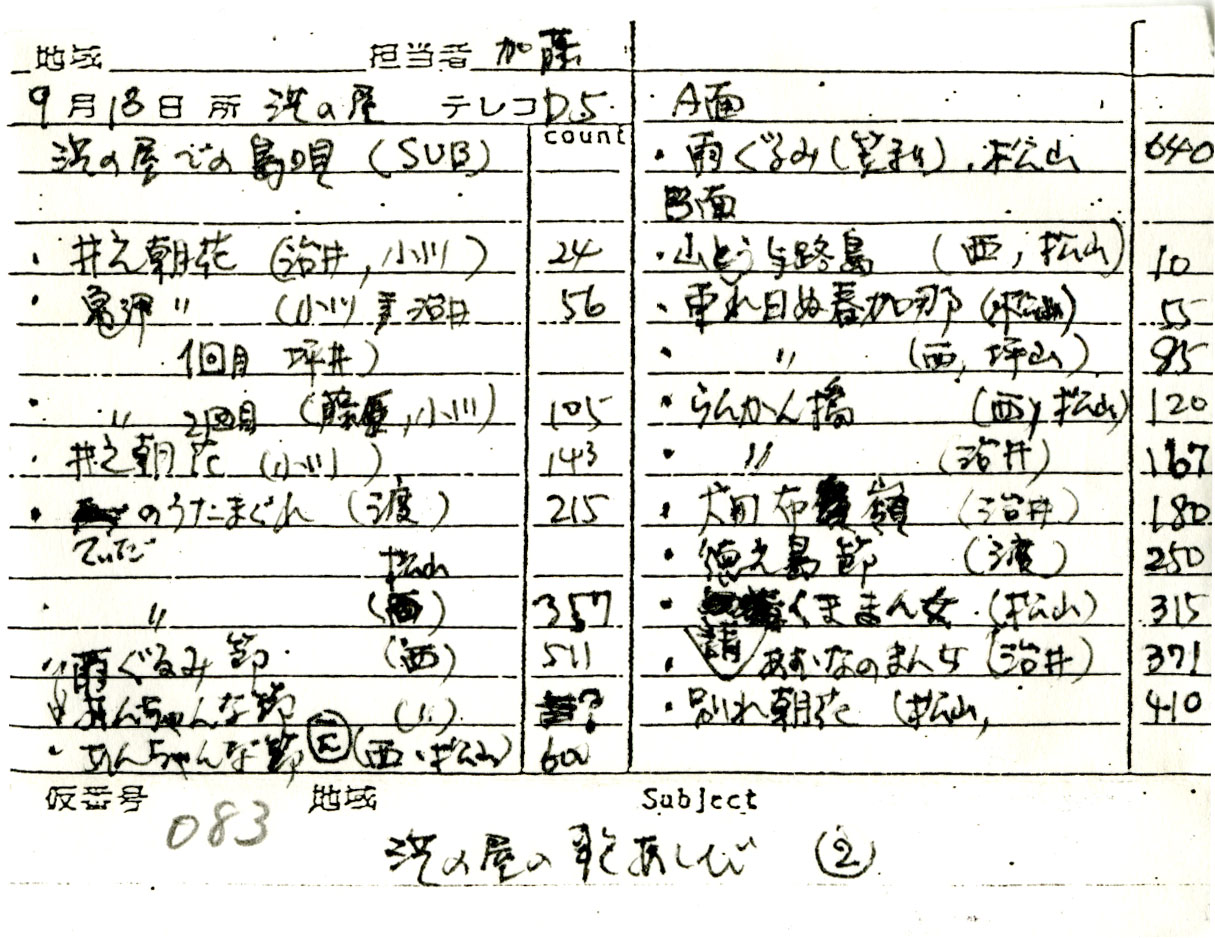 地域 担当者 加藤
9月18日 所 浜の屋 テレコ D5
浜の屋での島唄 (SUB) count
・井之朝花 (治井, 小川) 24
・亀津〃 (小川 治井 56
1回目 坪井)
・〃 2回目 (藤原, 小川) 105
・井之朝花 (小川) 143
・のうたまぐれ (渡) 215
てぃだ
松山
・〃 (西) 357
雨ぐるみ節 (西) 511
あんちゃんな節 (〃) ?
・あんちゃんな節 (西・松山) 600
A面
・雨ぐるみ(笠利), 松山 640
B面
・山とぅ与路島 (西, 松山) 10
・東れ日ぬ春加那 (松山) 55
・〃 (西, 坪山) 85
・らんかん橋 (西, 松山) 120
・〃 (治井) 167
・犬田布嶺 (治井) 180
・徳之島節 (渡) 250
・くままん女 (松山) 315
・請 なのまん女 (治井) 371
・別れ朝花 (松山, 410
仮番号 083 地域 Subject
浜の屋の歌あしび ②